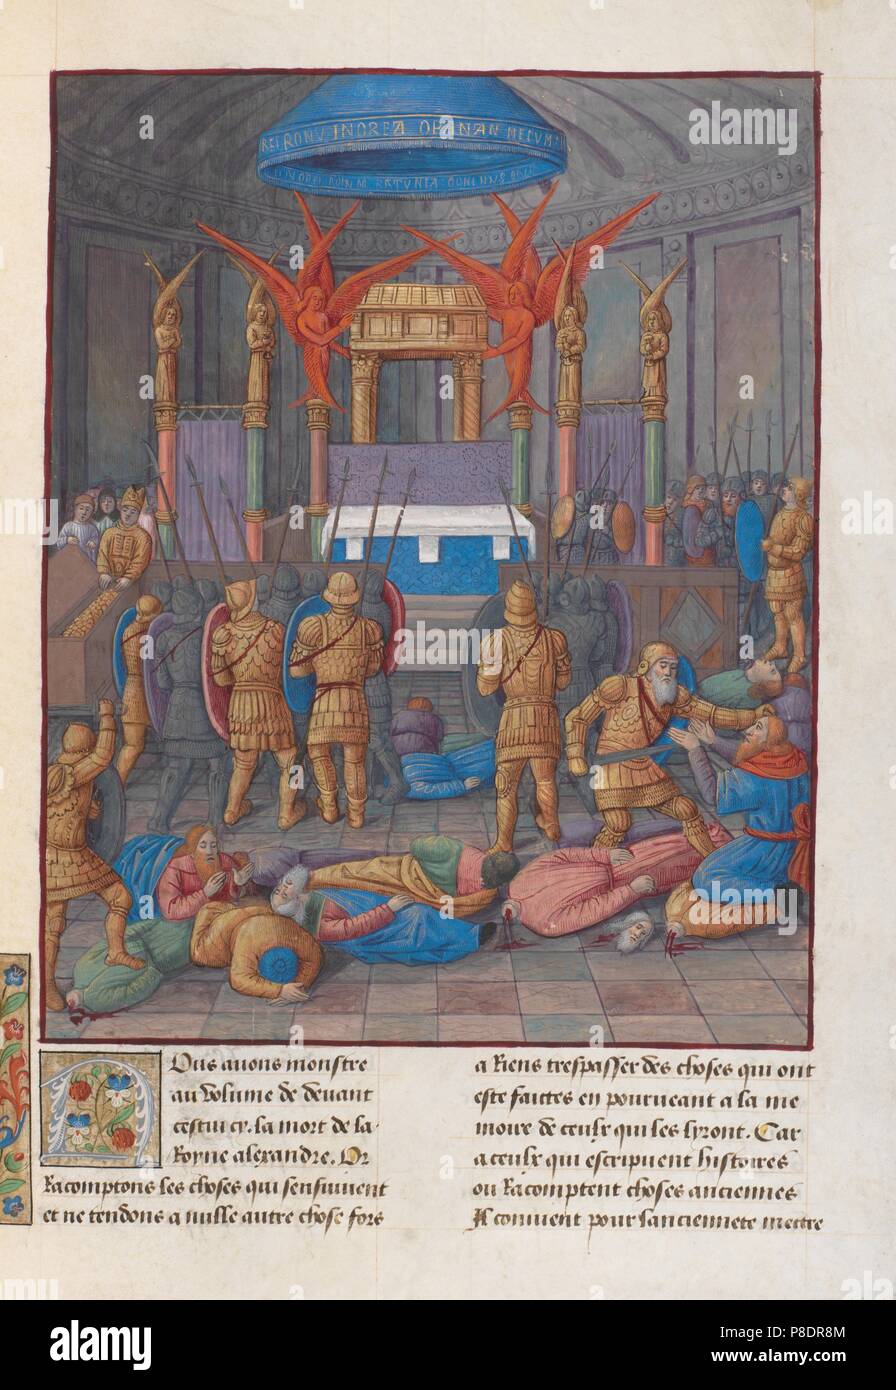 REI RONV INOREA OPINAN MECVM
Nous auons monstre
au volume de deuant
cestui cy. la mort de la
Royne alexandre. Or
Racomptons les choses qui sensuiuent
et ne tendons a nulle autre chose fors
a Riens trespasser des choses qui ont
este faictes en pourueant a la me
moire de ceulx qui les lyront. Car
a ceulx qui escripuent histoires
ou Racomptent choses anciennes
Il conuient pour lanciennete mettre
alamy
P8DR8M
www.alamy.com